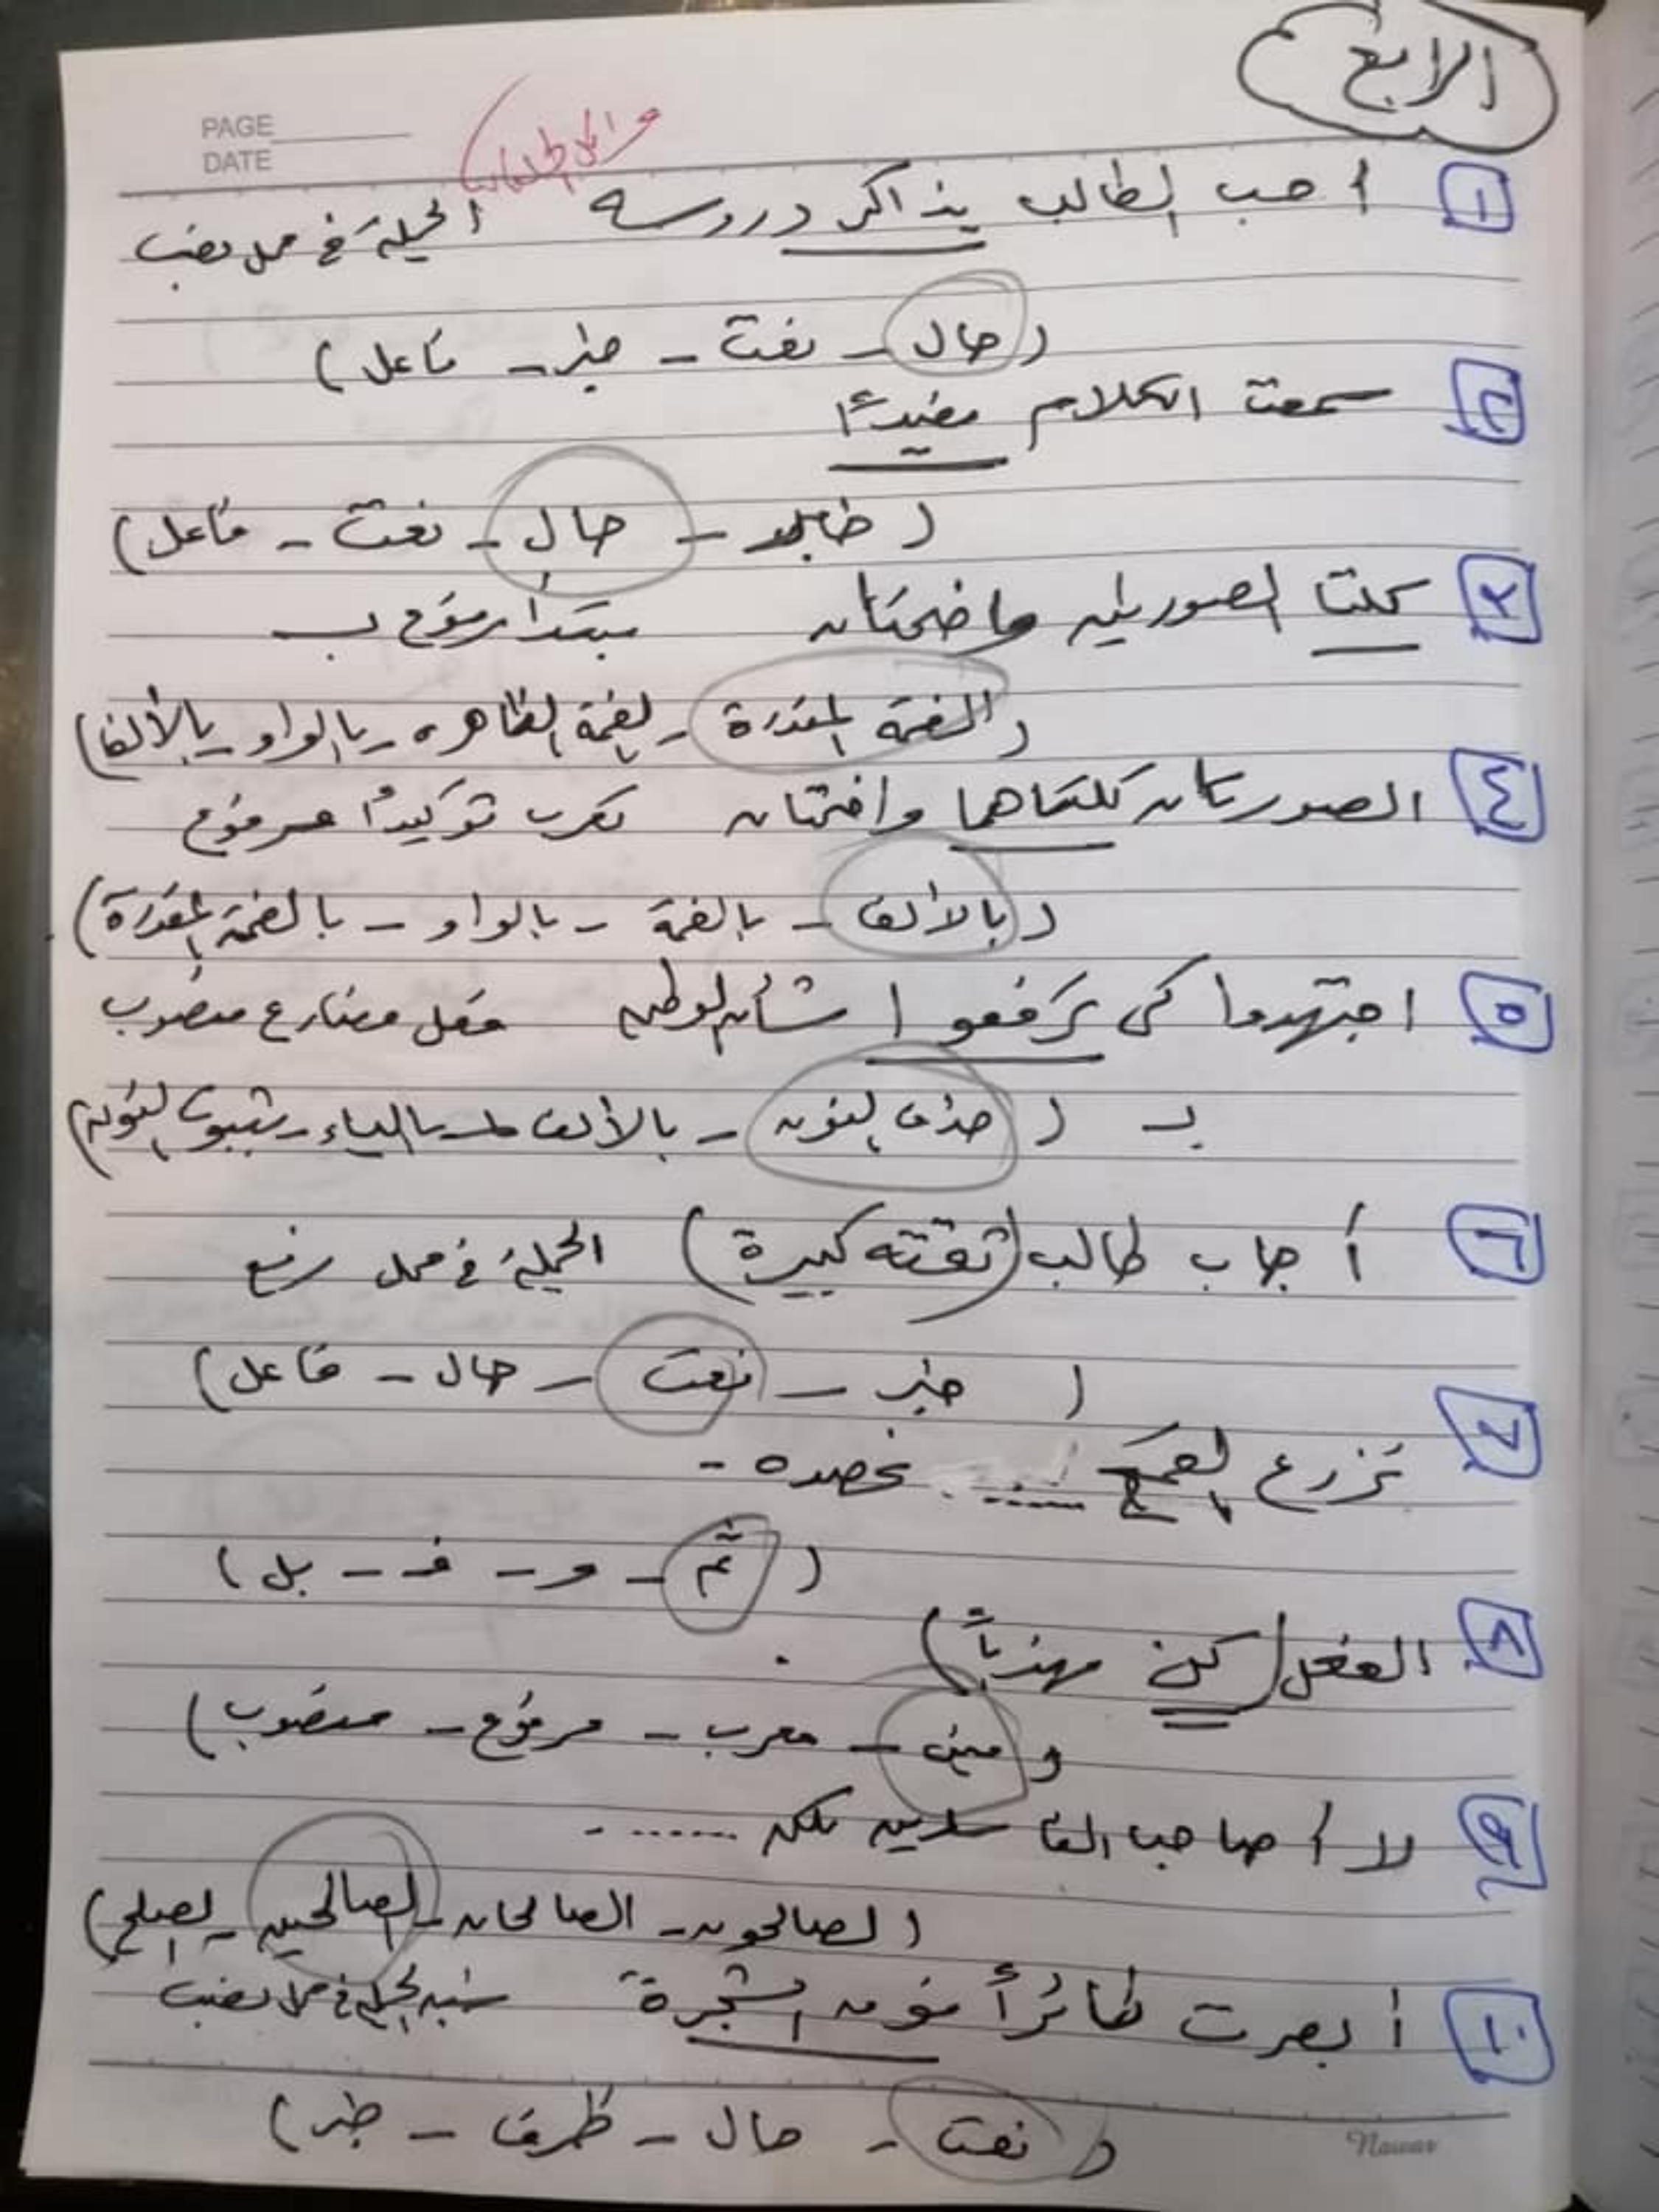 الرابع
PAGE
DATE
١ أحب الطالب يذاكر دروسه الجملة في محل نصب
(حال - نعت - خبر - فاعل)
٢ سمعت الكلام مفيدًا
( - حال - نعت - فاعل)
٣ كلتا الصورتين واضحتان مبتدأ مرفوع بـ
(الضمة المقدرة - الضمة الظاهرة - بالواو - بالألف)
٤ الصورتان كلتاهما واضحتان تعرب توكيدًا مرفوع
(بالألف - بالضمة - بالواو - بالضمة المقدرة)
٥ اجتهدوا كي ترفعوا شأن الوطن فعل مضارع منصوب
بـ (حذف النون - بالألف - بالياء - بثبوت النون)
٦ أجاب طالب (ثقته كبيرة) الجملة في محل رفع
(خبر - نعت - حال - فاعل)
٧ نزرع القمح ...... نحصده -
(ثم - و - فـ - بل)
٨ الفعل (كن مهذبًا)
(مبني - معرب - مرفوع - منصوب)
٩ لا أصاحب الفاسدين لكن .......
(الصالحون - الصالحان - الصالحين - الصلح)
١٠ أبصرت طائرًا فوق الشجرة شبه الجملة في محل نصب
(نعت - حال - ظرف - خبر)
Nawar